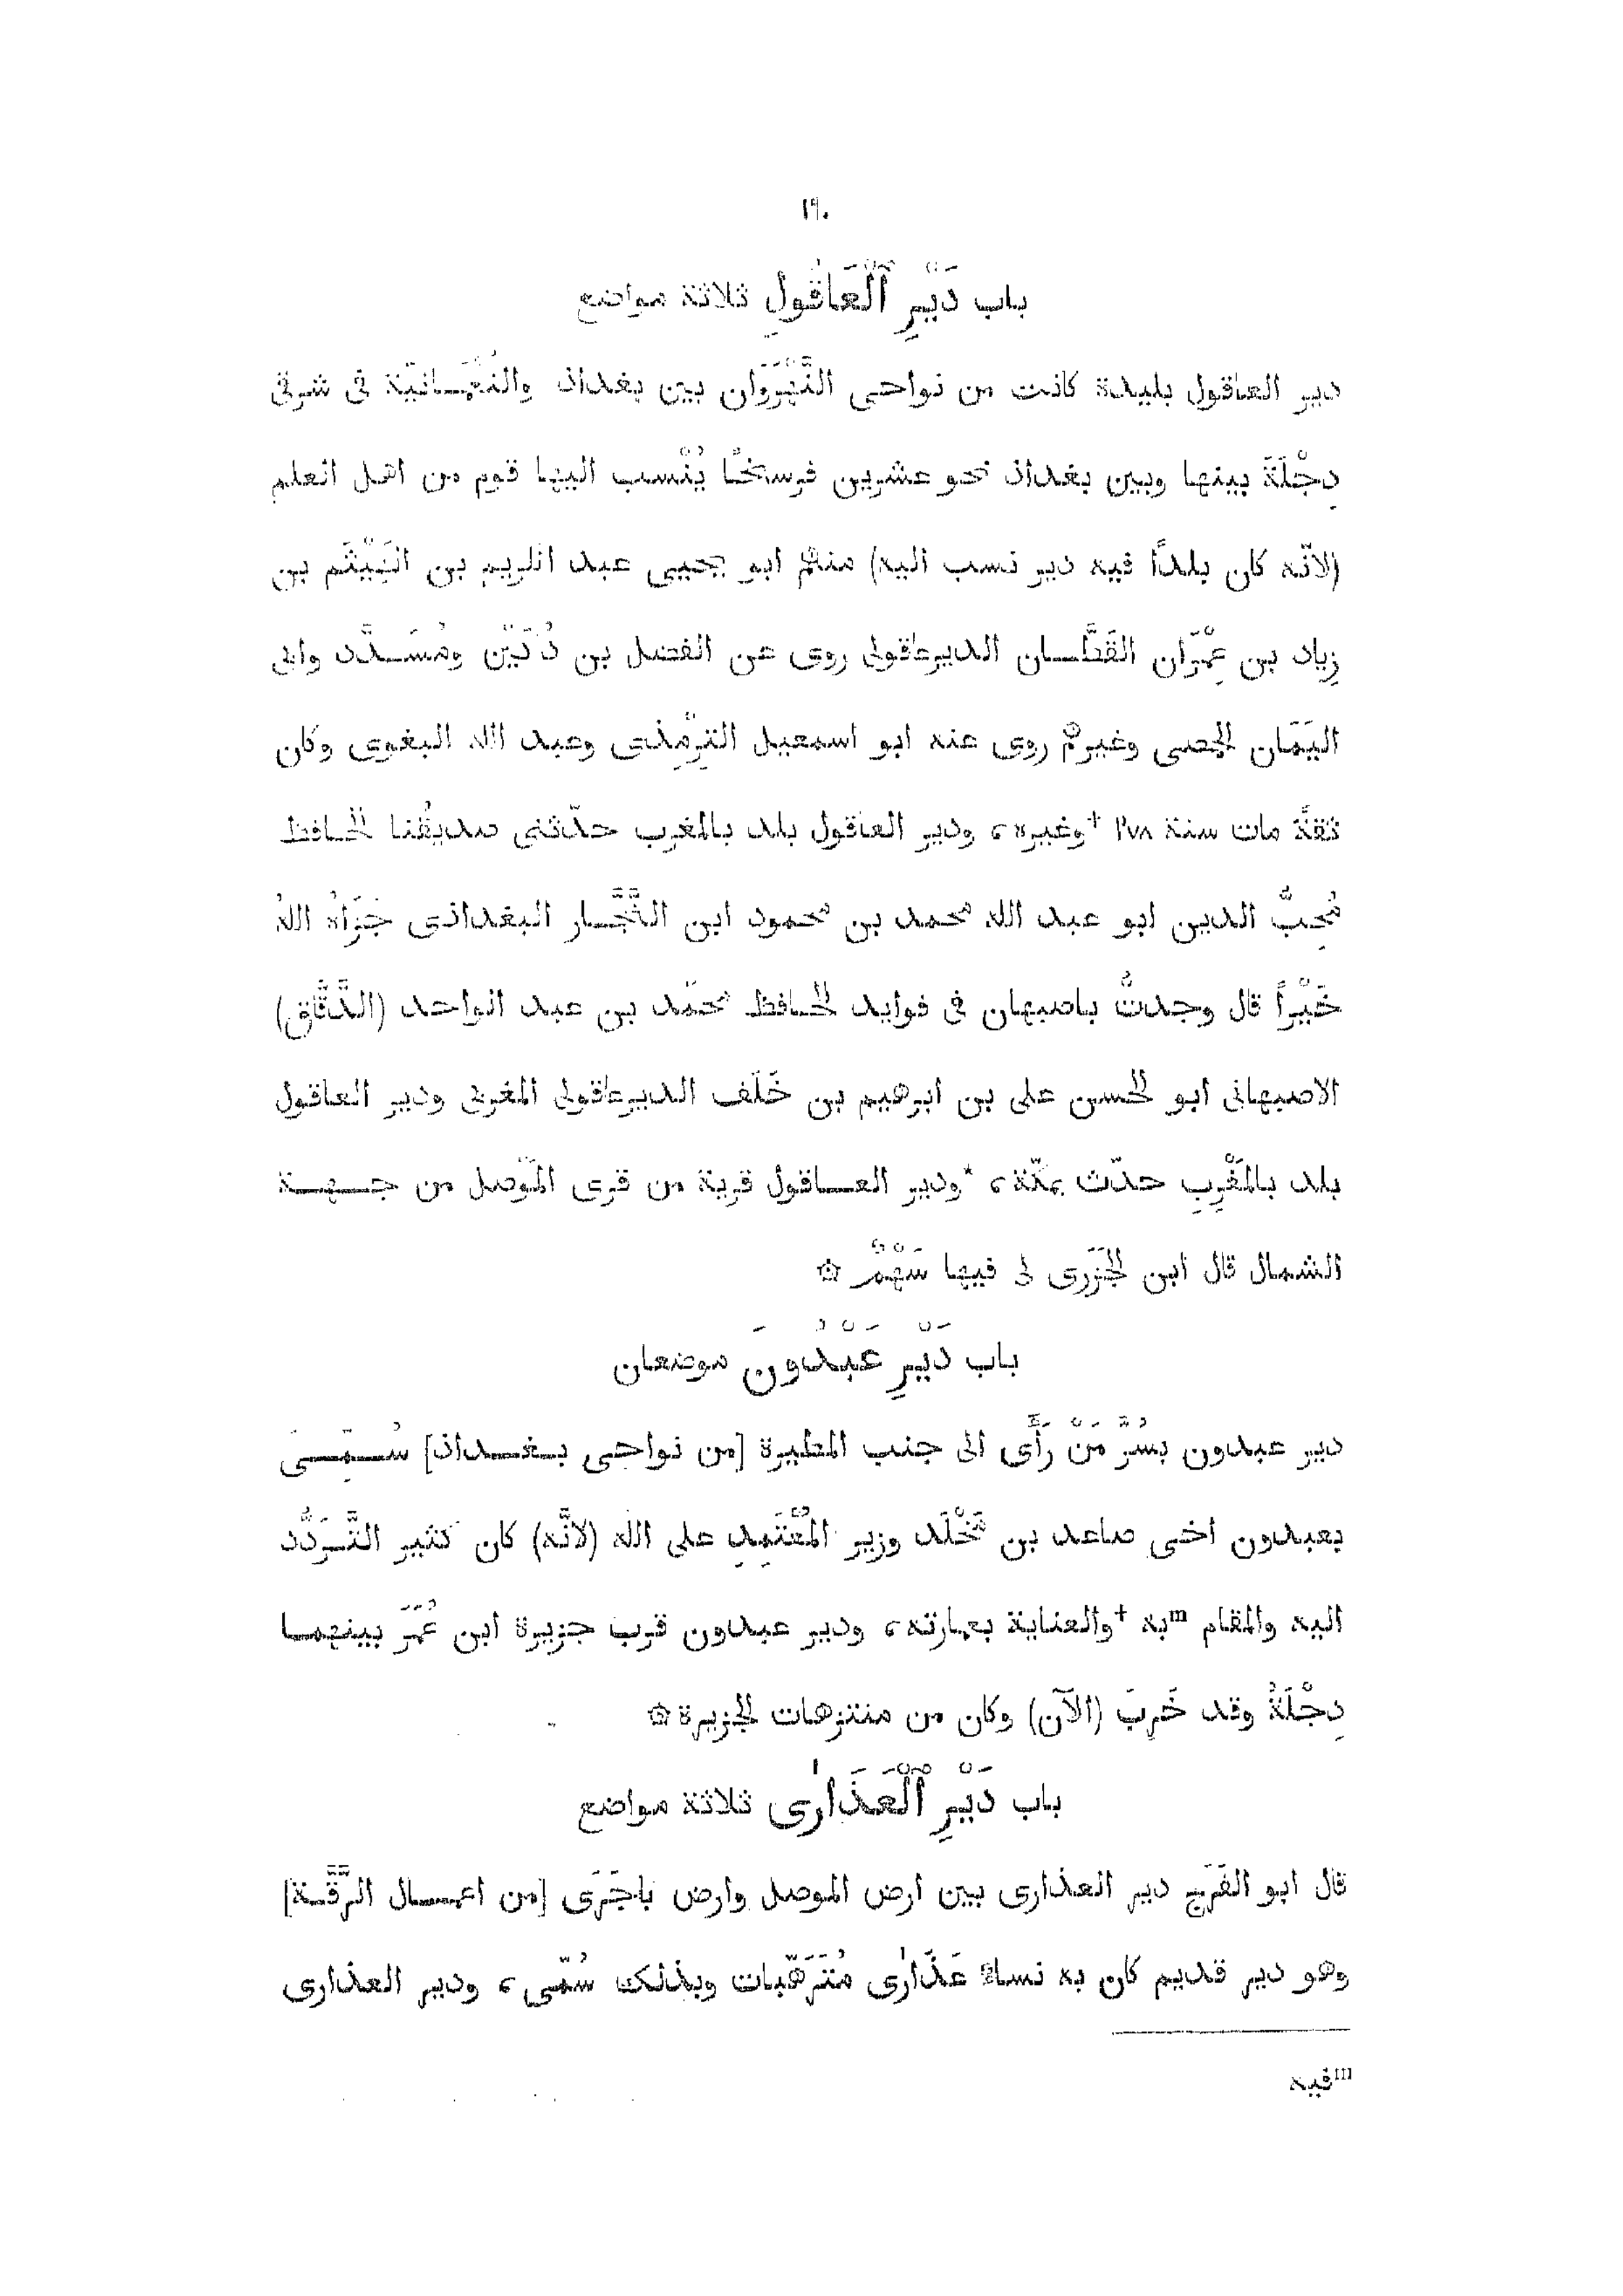 ١٩٠
باب دَيْرِ ٱلْعَاقُولِ ثلاثة مواضع
دير العاقول بليدة كانت من نواحى النَّهْرَوَان بين بغداذ والنُعْمَـانيّة فى شرقى
دِجْلَةَ بينها وبين بغداذ نحو عشرين فرسخًا يُنْسب اليها قوم من اهل العلم
(لانّه كان بلدًا فيه دير نسب اليه) منهم ابو يحيى عبد الكريم بن الهَيْثَم بن
زِياد بن عِمْرَان القَطَّـان الديرعاقولى روى عن الفضل بن دُكَيْن ومُسَـدَّد وابى
اليَمَان الحمصى وغيرهم روى عنه ابو اسمعيل التِرْمِذى وعبد الله البغوى وكان
ثقةً مات سنة ٢٧٨ +وغيره، ودير العاقول بلد بالمغرب حدّثنى صديقُنا الحـافظ
مُحِبُّ الدين ابو عبد الله محمد بن محمود ابن النَّجَّـار البغداذى جَزَاهُ اللهُ
خَيْرًا قال وجدتُ باصبهان فى فوايد الحـافظ محمّد بن عبد الواحد (الدَّقَّاق)
الاصبهانى ابو الحسن على بن ابرهيم بن خَلَف الديرعاقولى المغربى ودير العاقول
بلد بالمَغْرِبِ حدّث بمكّة، *ودير العـاقول قرية من قرى المَوْصل من جـهـة
الشمال قال ابن الجَزَرى لى فيها سَهْمٌ ۞
باب دَيْرِ عَبْدُونَ موضعان
دير عبدون بسُرَّ مَنْ رَأَى الى جنب المطيرة [من نواحى بـغـداذ] سُـمِّـىَ
بعبدون اخى صاعد بن مَخْلَد وزير المُعْتَمِدِ على الله (لانَّه) كان كثير التَّـرَدُّد
اليه والمقام mبه +والعناية بعمارته، ودير عبدون قرب جزيرة ابن عُمَرَ بينهمـا
دِجْلَةُ وقد خَرِبَ (الآن) وكان من منتزهات الجزيرة ۞
باب دَيْرِ ٱلْعَذَارٰى ثلاثة مواضع
قال ابو الفَرَج دير العذارى بين ارض الموصل وارض باجَرْمَى [من اعمـال الرَّقَّـة]
وهو دير قديم كان به نساءٌ عَذَارٰى مُتَرَهِّبات وبذلك سُمِّى، ودير العذارى
mفيه